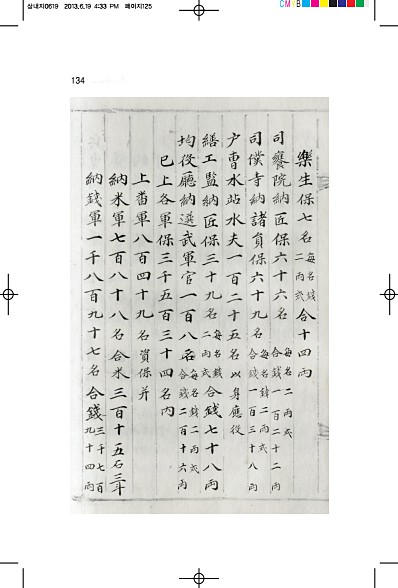 삼내지0619 2013.6.19 4:33 PM 페이지125
CM
134
樂生保七名 每名錢二兩式 合十四兩
司饔院納匠保六十六名 每名二兩式合錢一百二十二兩
司僕寺納諸員保六十九名 每名錢二兩式合錢一百三十八兩
户曹水站水夫一百二十五名以身應役
繕工監納匠保三十九名 每名錢二兩式 合錢七十八兩
均役廳納選武軍官一百八名 每名錢二兩式合錢二百十六兩
已上各軍保三千五百三十四名內
上番軍八百四十九名資保并
納米軍七百八十八名合米三百十五石三斗
納錢軍一千八百九十七名合錢三千七百九十四兩